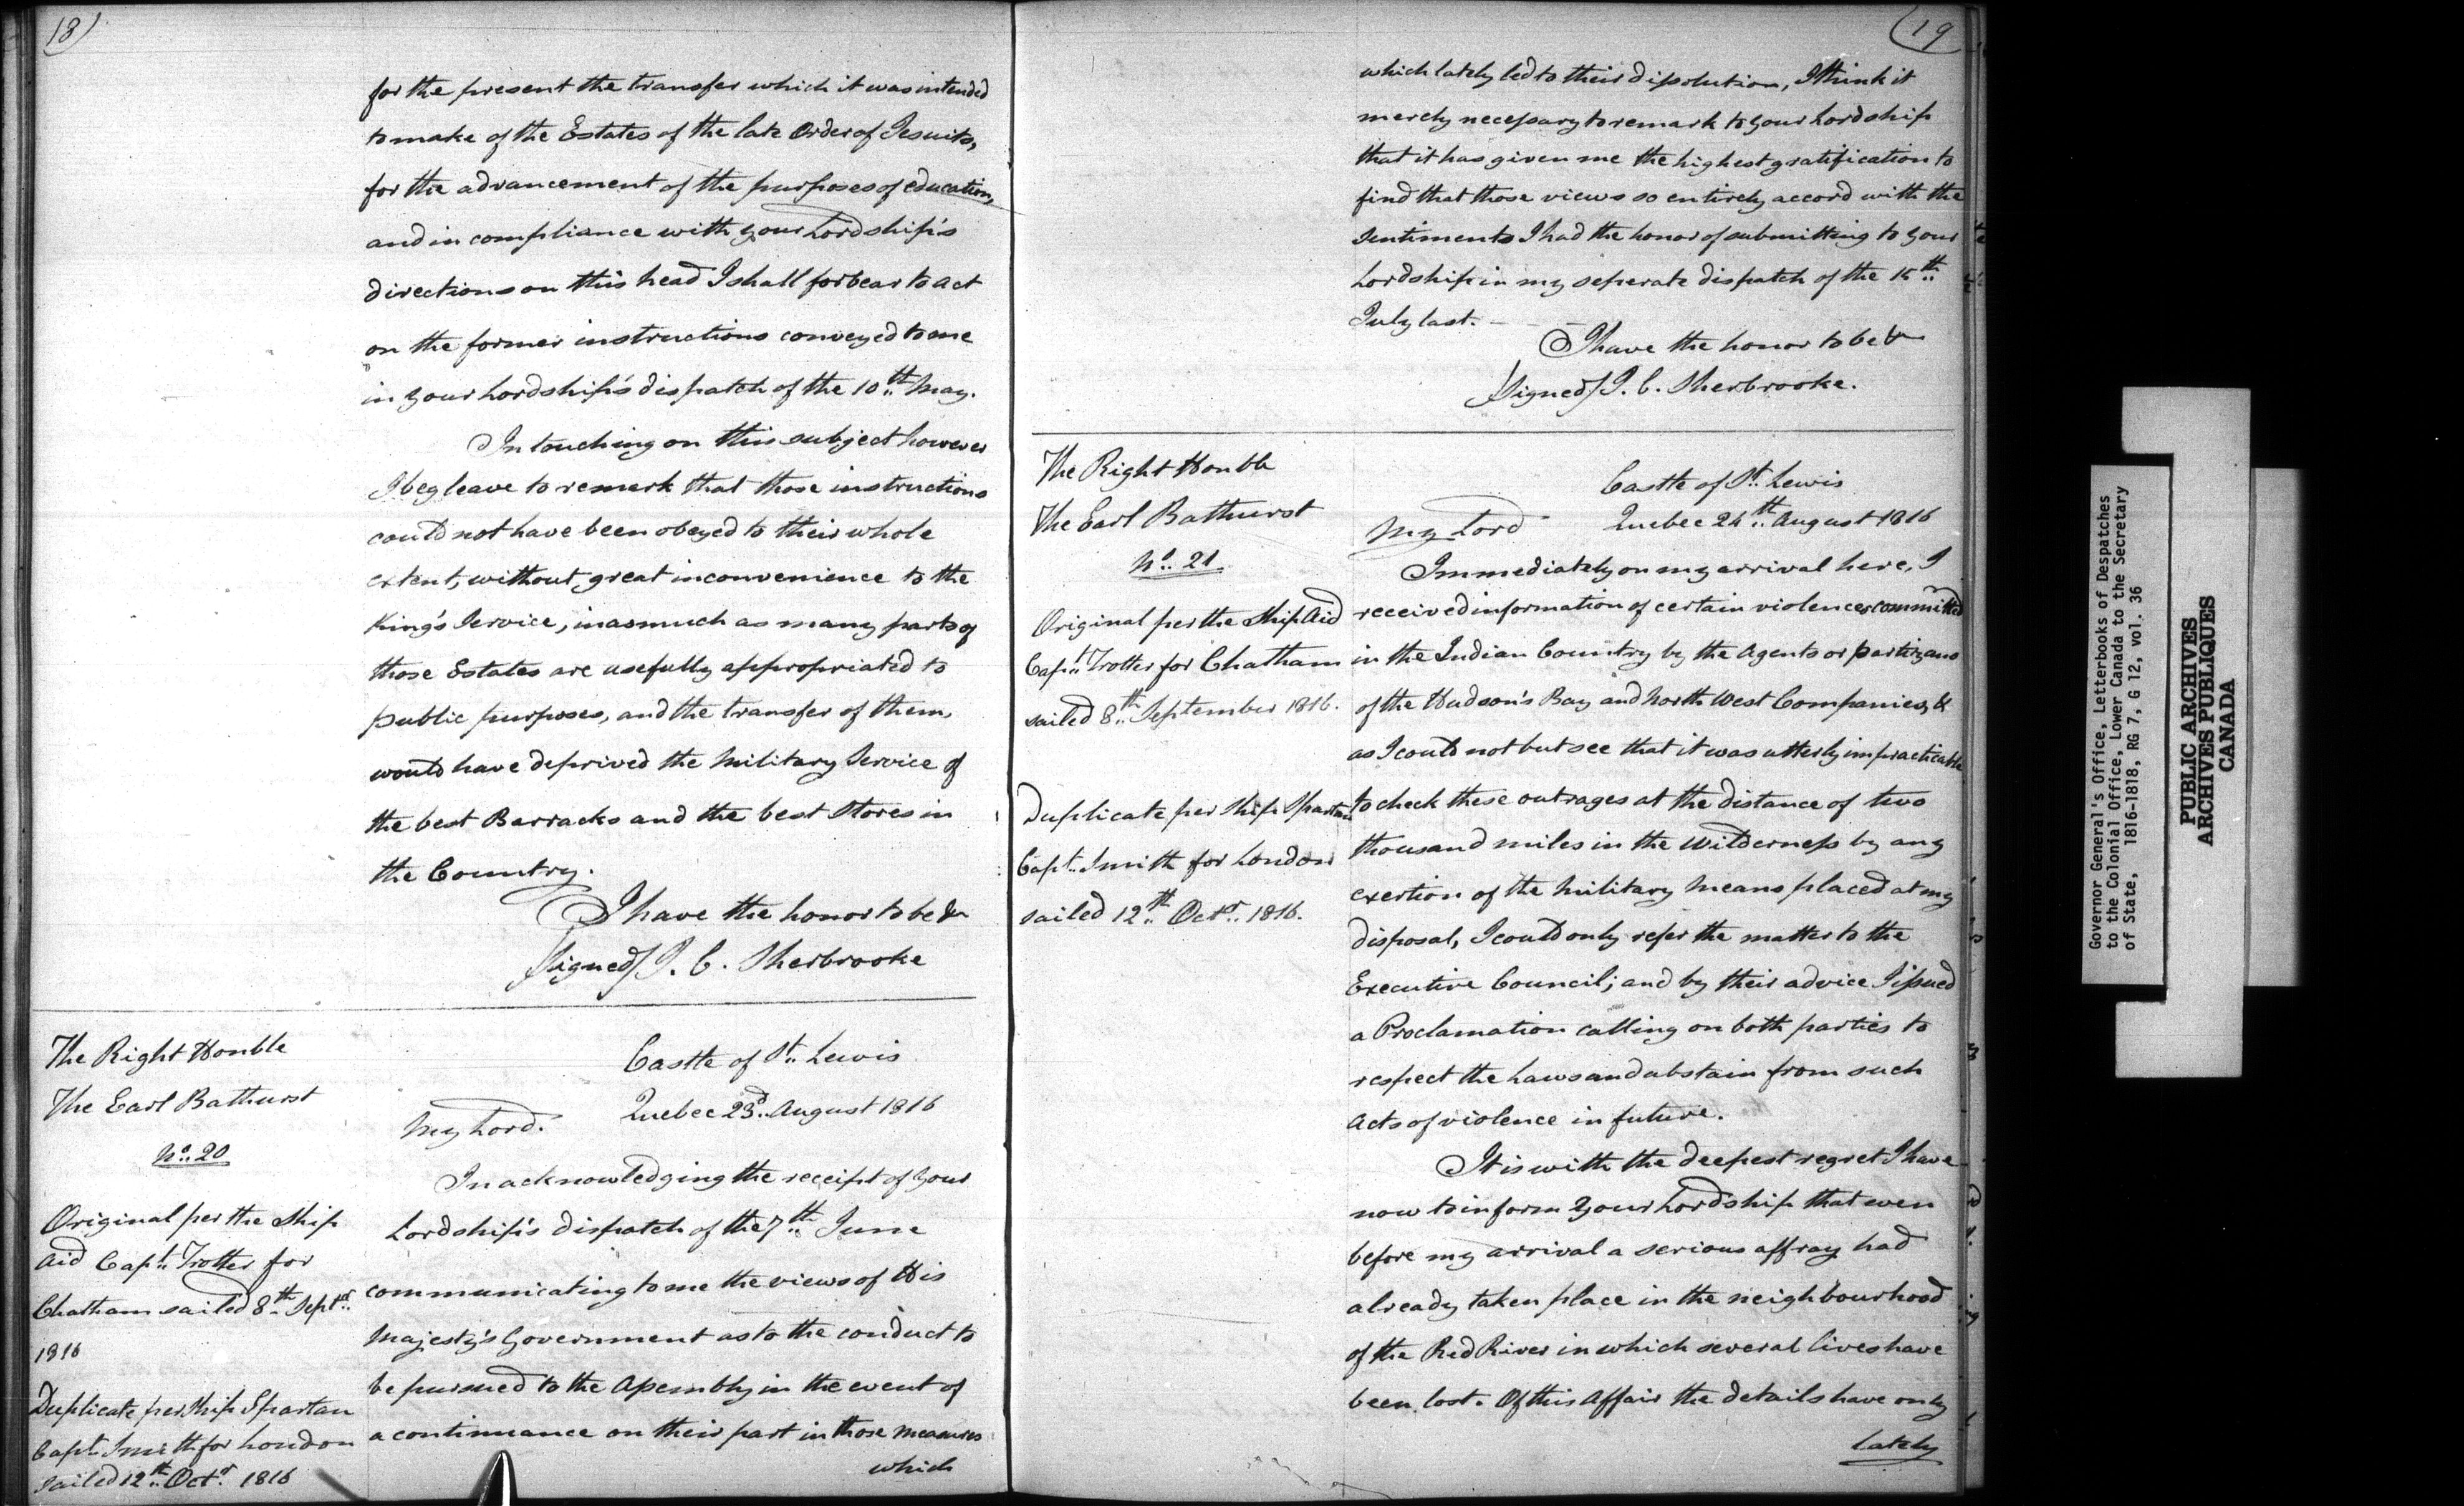 18)
for the present the transfer which it was intended
to make of the Estates of the late Order of Jesuits,
for the advancement of the purposes of education,
and in compliance with your Lordship's
directions on this head I shall forbear to act
on the former instructions conveyed to me
in your Lordship's dispatch of the 10th May.
In touching on this subject however
I beg leave to remark that those instructions
could not have been obeyed to their whole
extent, without, great inconvenience to the
King's Service, inasmuch as many parts of
those Estates are usefully appropriated to
public purposes, and the transfer of them,
would have deprived the Military Service of
the best Barracks and the best Stores in
the Country.
I have the honor to be &c
Signed/ J. C. Sherbrooke
The Right Honble
The Earl Bathurst
No. 20
Original per the Ship
Aid Capt. Trotter for
Chatham sailed 8th Septr.
1816
Duplicate per Ship Spartan
Capt. Smith for London
sailed 12th Octr. 1816
Castle of St. Lewis
Quebec 23d. August 1816
My Lord.
In acknowledging the receipt of your
Lordship's dispatch of the 7th June
communicating to me the views of His
Majesty's Government as to the conduct to
be pursued to the Assembly in the event of
a continuance on their part in those measures
which
(19
which lately led to their dissolution, I think it
merely necessary to remark to your Lordship
that it has given me the highest gratification to
find that those views so entirely accord with the
sentiments I had the honor of submitting to your
Lordship in my seperate dispatch of the 15th
July last.
I have the honor to be &c
Signed/ J. C. Sherbrooke.
The Right Honble
The Earl Bathurst
No. 21
Original per the Ship Aid
Capt. Trotter for Chatham
sailed 8th September 1816.
Duplicate per Ship Spartan
Capt. Smith for London
sailed 12th Octr. 1816.
Castle of St. Lewis
Quebec 24th August 1816
My Lord
Immediately on my arrival here, I
received information of certain violences committed
in the Indian Country by the Agents or partizans
of the Hudson's Bay and North West Companies, &
as I could not but see that it was utterly impracticable
to check these outrages at the distance of two
thousand miles in the wilderness by any
exertion of the Military Means placed at my
disposal, I could only refer the matter to the
Executive Council; and by their advice I issued
a Proclamation calling on both parties to
respect the Laws and abstain from such
acts of violence in future.
It is with the deepest regret I have
now to inform your Lordship that even
before my arrival a serious affray had
already taken place in the neighbourhood
of the Red River in which several lives have
been lost. Of this Affair the details have only
lately
Governor General's Office, Letterbooks of Despatches
to the Colonial Office, Lower Canada to the Secretary
of State, 1816-1818, RG 7, G 12, vol. 36
PUBLIC ARCHIVES
ARCHIVES PUBLIQUES
CANADA